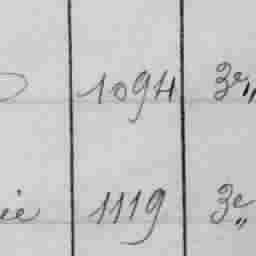 1094 3e,,
ie 1119 3e,,